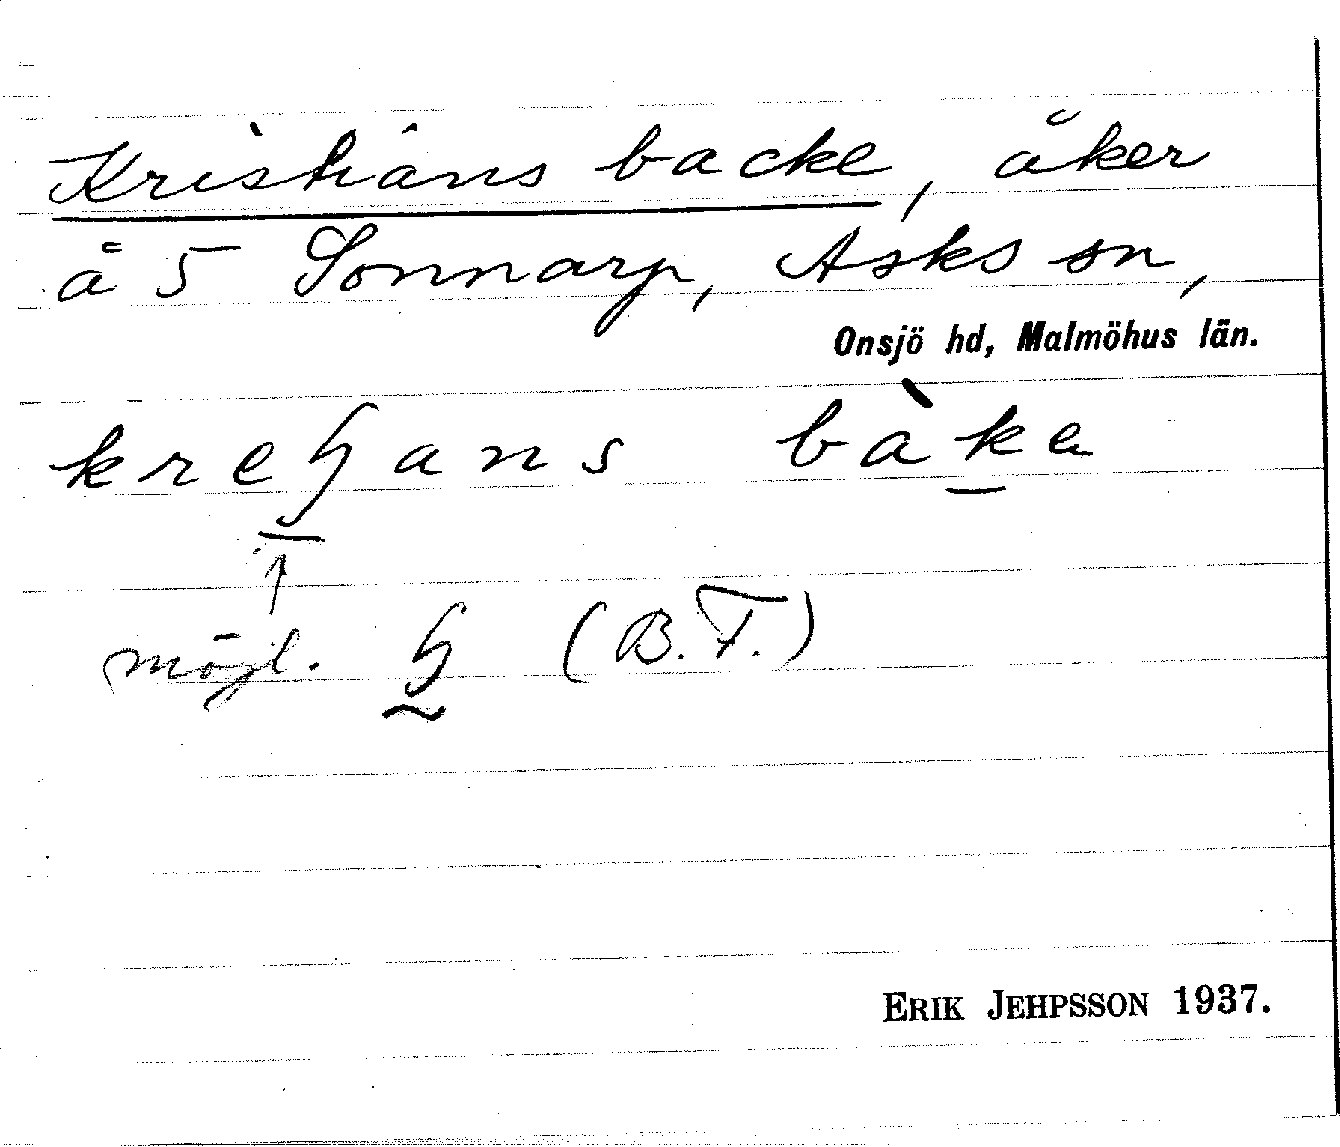 Kristians backe, åker
å 5 Sonnarp, Asks sn,
Onsjö hd, Malmöhus län.
kreꞕans bàka
↑
möjl. ꞕ (B.F.)
ERIK JEHPSSON 1937.